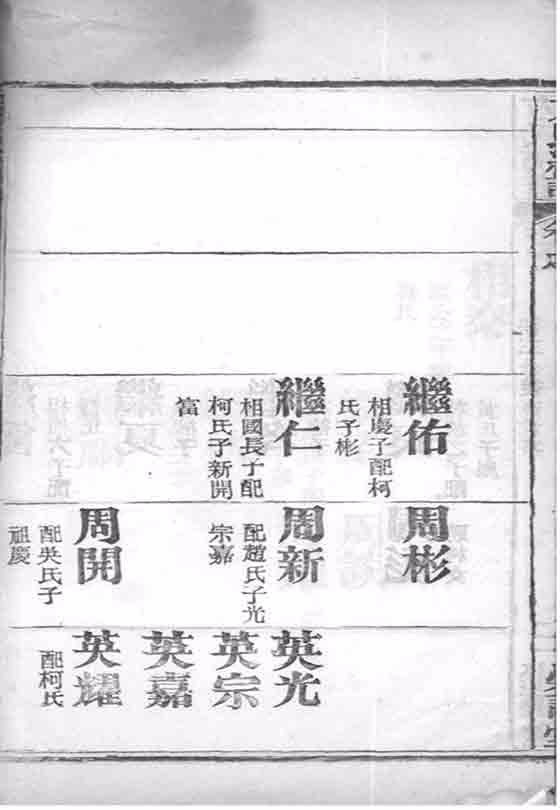 繼佑
相慶子配柯
氏子彬
繼仁
相國長子配
柯氏子新開
富
周彬
周新
配趙氏子光
宗嘉
周開
配吳氏子
祖慶
英光
英宗
英嘉
英耀
配柯氏